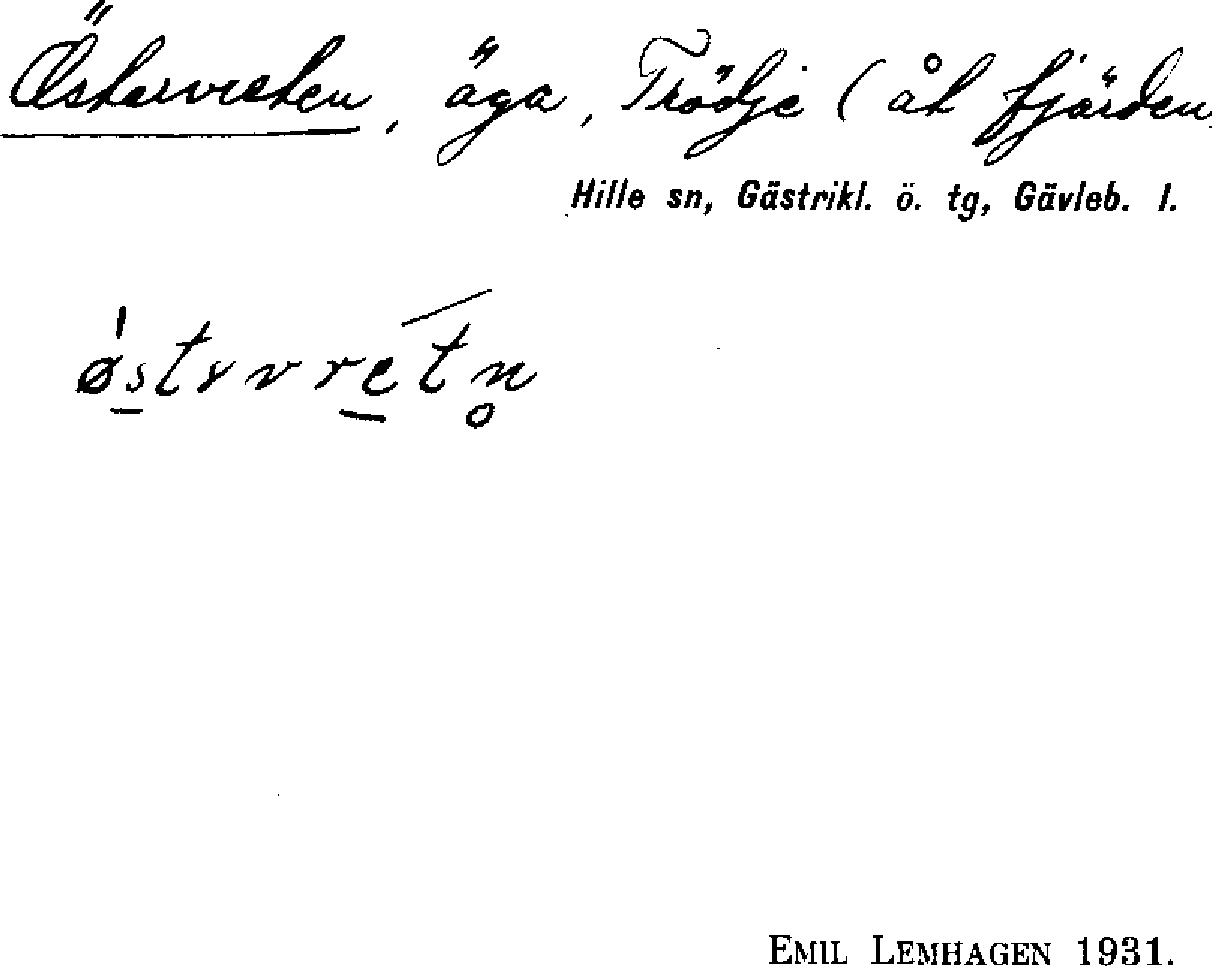 Östervreten, äga, Trödje (åt fjärden
Hille sn, Gästrikl. ö. tg, Gävleb. l.
EMIL LEMHAGEN 1931.